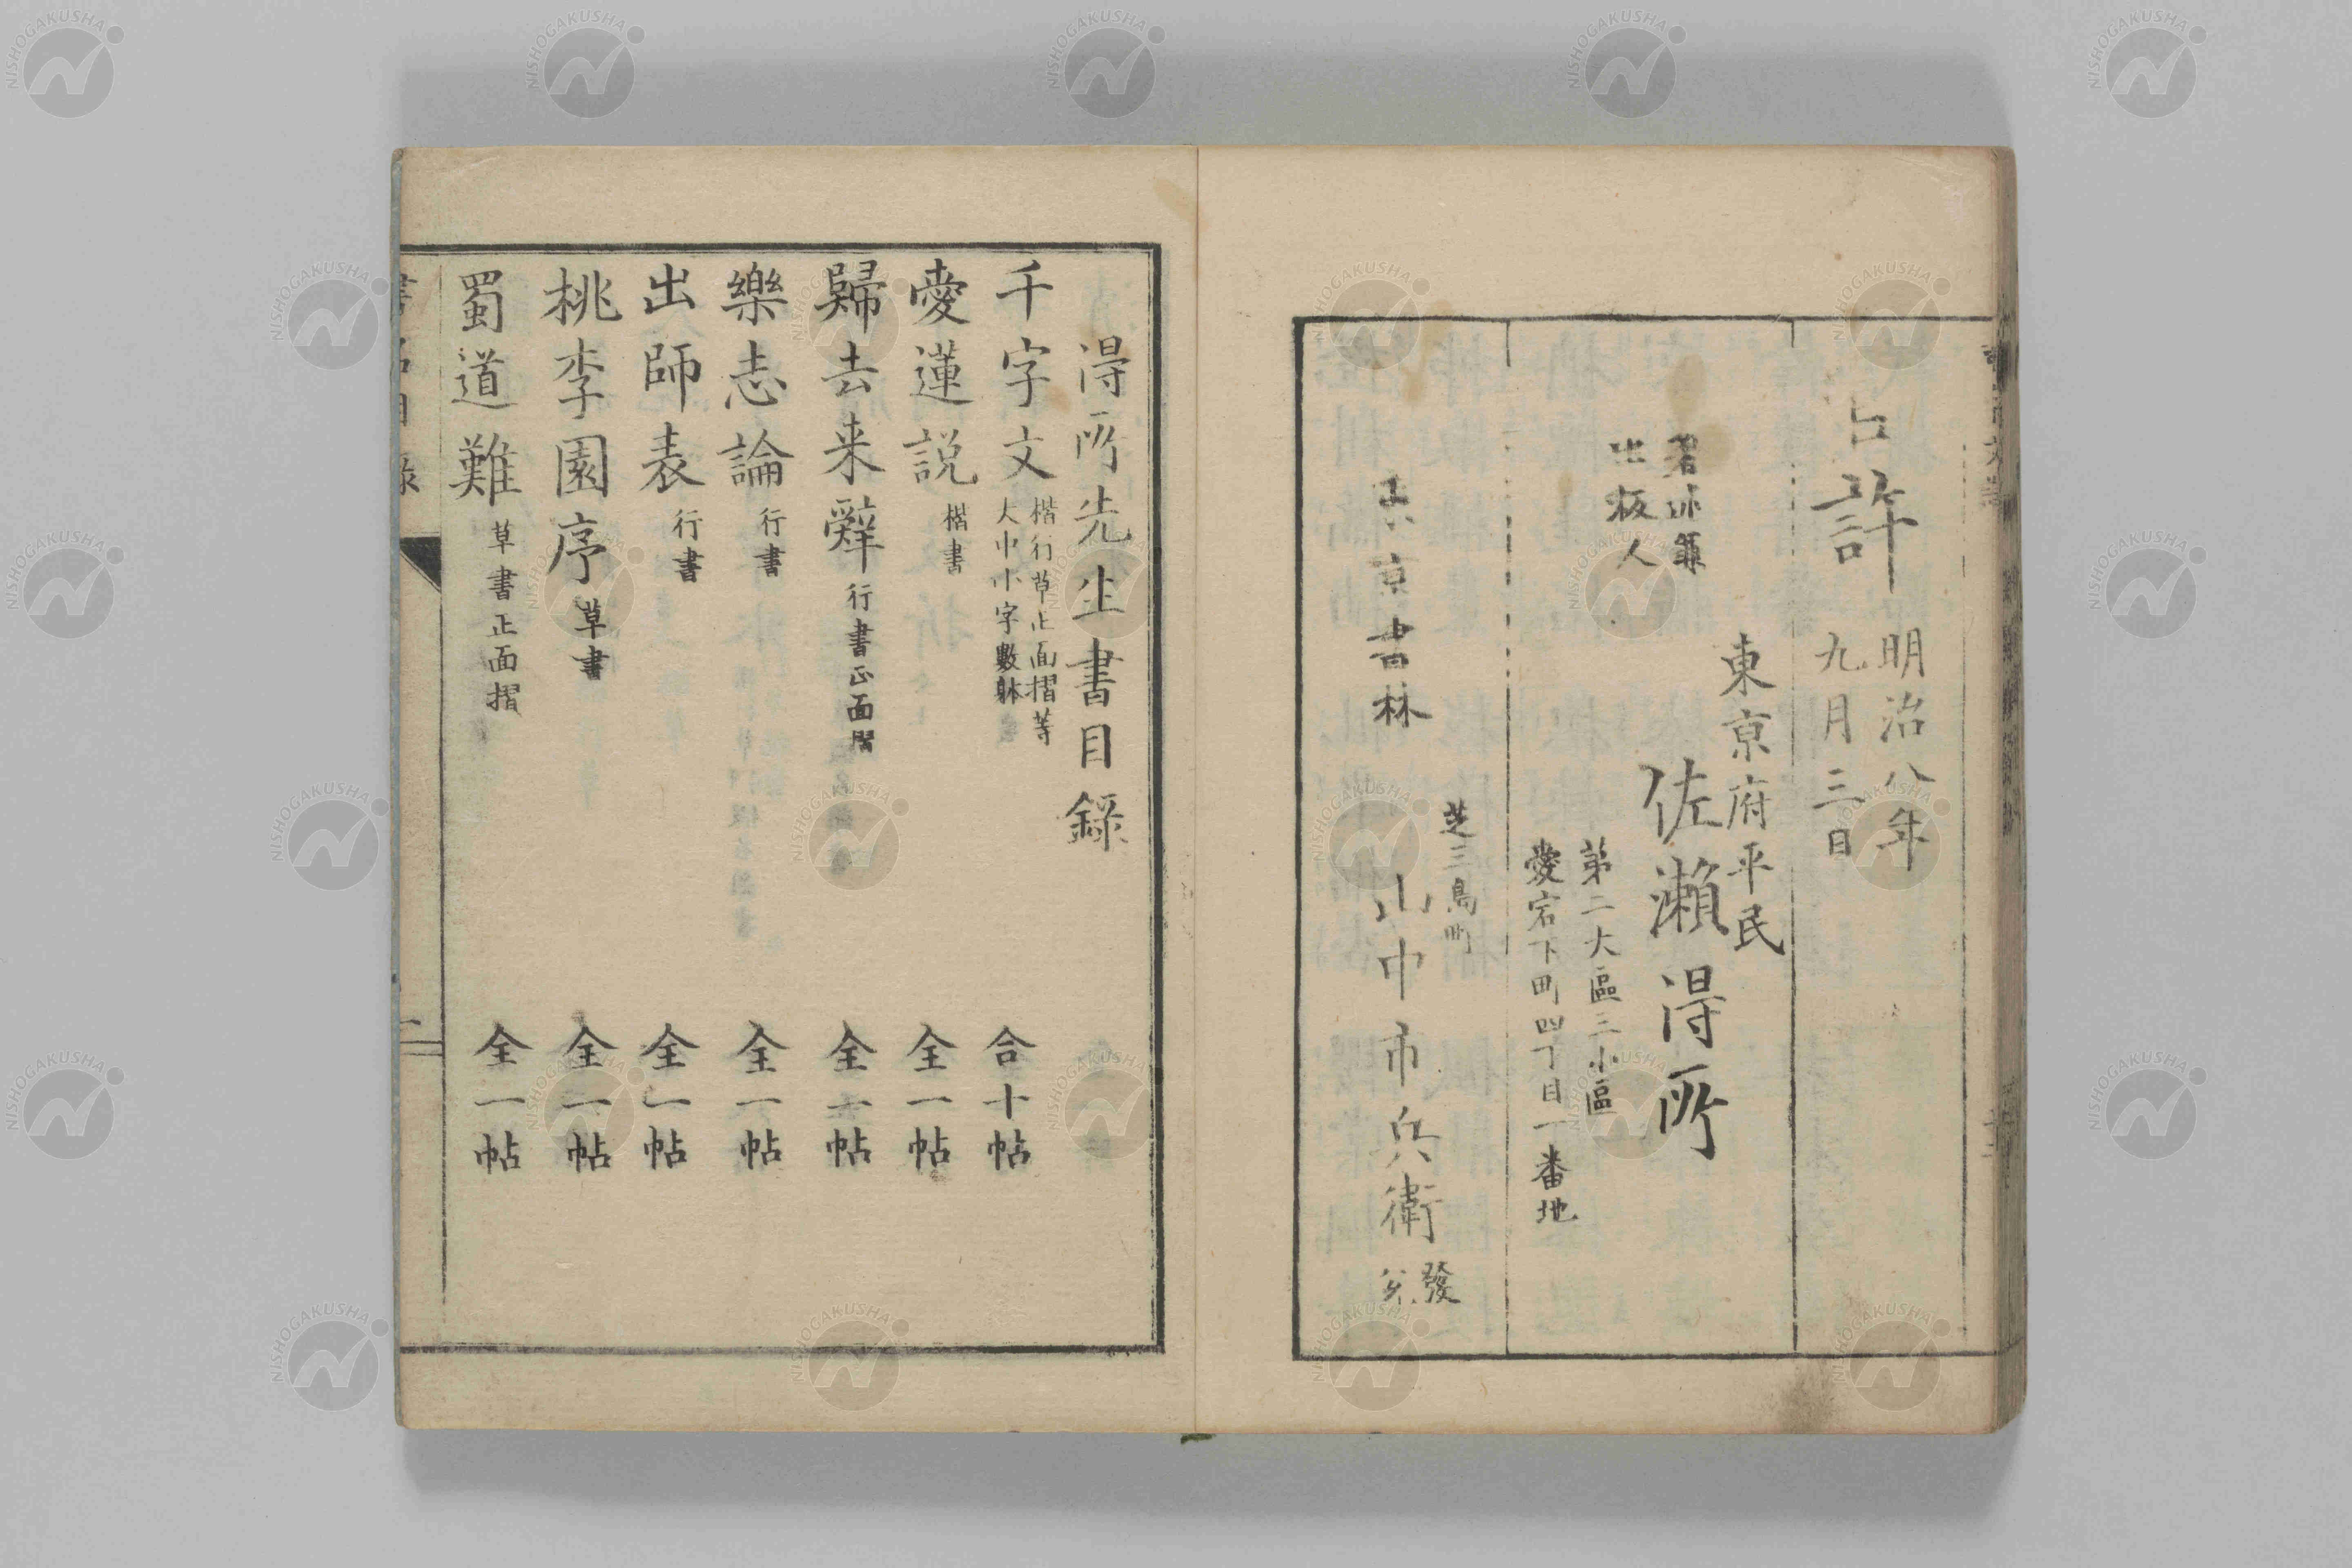 官許
明治八年
九月三日
著述兼
出板人
東京府平民
佐瀬得所
第二大區三小區
愛宕下町四丁目一番地
東京書林
芝三島町
山中市兵衛
發
兌
得所先生書目録
千字文
楷行草正面摺等
大中小字數躰
合十帖
愛蓮説 楷書 全一帖
歸去来辭 行書正面摺 全一帖
樂志論 行書 全一帖
出師表 行書 全一帖
桃李園序 草書 全一帖
蜀道難 草書正面摺 全一帖
書名目録
二
NISHOGAKUSHA